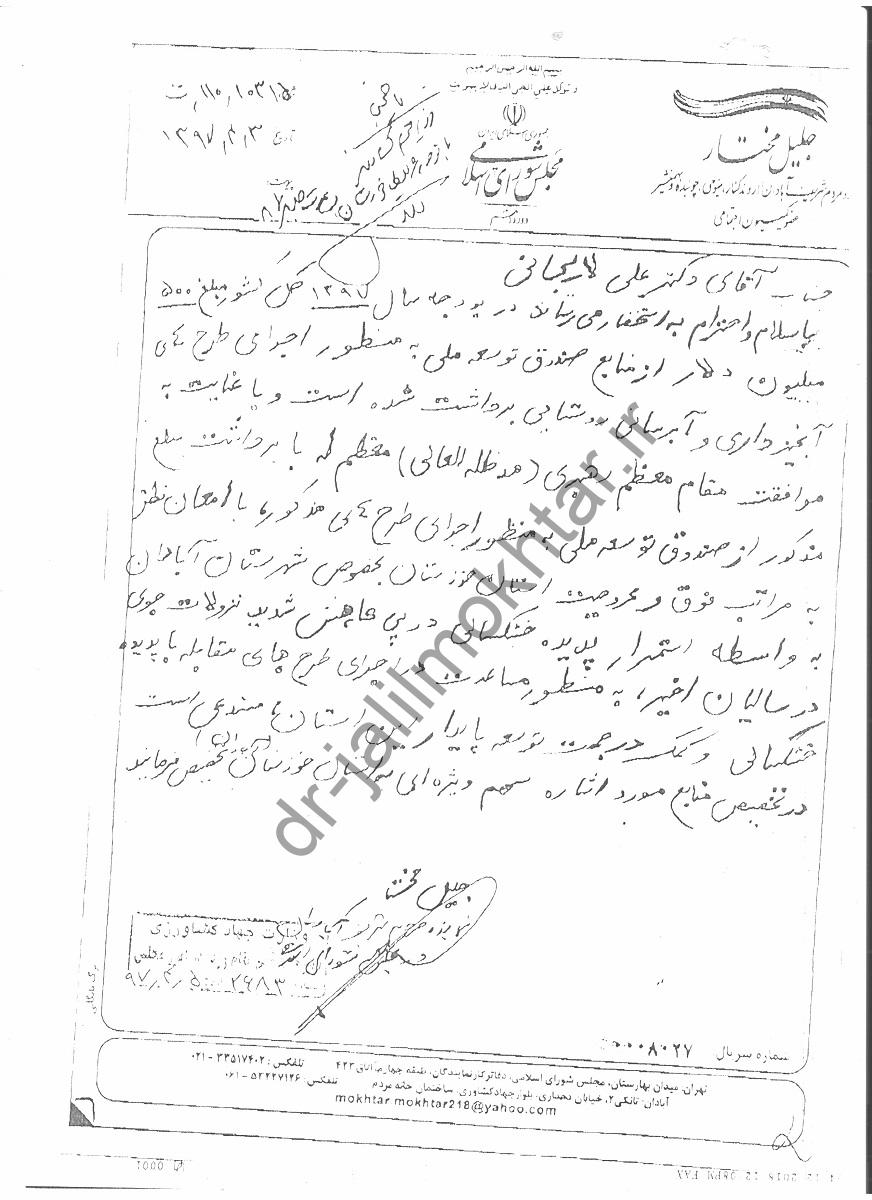 بسم الله الرحمن الرحیم
و توکل علی الحی الذی لا یموت
جمهوری اسلامی ایران
مجلس شورای اسلامی
جلیل مختار
مردم شریف آبادان، اروندکنار، مینوئی، چوئبده و بهمنشیر
عضو کمیسیون اجتماعی
تاریخ ۱۳۹۷/۴/۳
پیوست
جناب آقای دکتر علی لاریجانی
باسلام و احترام به استحضار می رساند در بودجه سال ۱۳۹۷ کل کشور مبلغ ۵۰۰
میلیون دلار از منابع صندوق توسعه ملی به منظور اجرای طرح های
آبخیزداری و آبرسانی روستایی برداشت شده است و با عنایت به
موافقت مقام معظم رهبری (مدظله العالی) با برداشت مبلغ
مذکور از صندوق توسعه ملی به منظور اجرای طرح های مذکور، با امعان نظر
به مراتب فوق و محرومیت استان خوزستان بخصوص شهرستان آبادان
به واسطه استمرار پدیده خشکسالی در پی کاهش شدید نزولات جوی
در سالیان اخیر، به منظور مساعدت در اجرای طرح های مقابله با پدیده
خشکسالی و کمک در جهت توسعه پایدار این استان، مستدعی است
در تخصیص منابع مورد اشاره سهم ویژه ای به استان خوزستان تخصیص فرمایند
جلیل مختار
نماینده مردم شریف آبادان
در مجلس شورای اسلامی
وزارت جهاد کشاورزی
شماره سریال ۰۰۰۸۰۲۷
تهران، میدان بهارستان، مجلس شورای اسلامی، دفاتر کار نمایندگان، طبقه چهارم، اتاق ۴۲۳ تلفکس: ۳۳۵۱۷۴۰۲ - ۰۲۱
آبادان، تانکی۲، خیابان دهداری، بلوار جهاد کشاورزی، ساختمان خانه مردم تلفکس: ۵۳۲۲۷۱۲۶ - ۰۶۱
mokhtar.mokhtar218@yahoo.com
dr-jalilmokhtar.ir